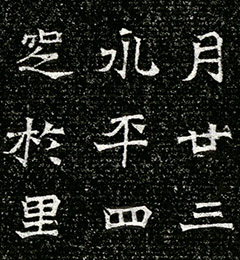 月廿三
永平四
於里